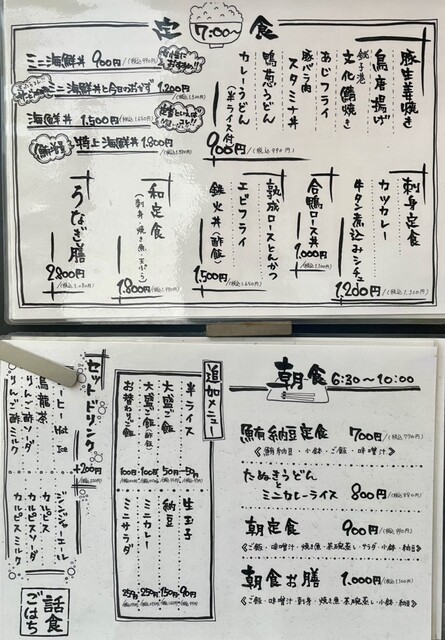 定 7:00〜 食
ミニ海鮮丼 900円(税込990円)
ミニ海鮮丼と今日のおかず 1.200円
海鮮丼 1.500円(税込1,650円)
特上海鮮丼 1.800円
豚生姜焼き
鳥唐揚げ
銚子港
文化鯖焼き
あじフライ
豚バラ肉
スタミナ丼
鴨葱うどん
カレーうどん
(半ライス付)
900円(税込990円)
刺身定食
カツカレー
牛タン煮込みシチュー
1.200円
合鴨ロース丼
1.000円
熟成ロースとんかつ
エビフライ
鉄火丼(酢飯)
1.500円(税込1,650円)
和定食
(刺身・焼き魚・天ぷら)
1.800円
うなぎ膳
2.800円
朝食 6:30〜10:00
鮪納豆定食 700円(税込770円)
《鮪納豆・小鉢・ご飯・味噌汁》
たぬきうどん
ミニカレーライス 800円(税込880円)
朝定食 900円(税込990円)
《ご飯・味噌汁・焼き魚・茶碗蒸し・サラダ・小鉢・納豆》
朝食お膳 1.000円
《ご飯・味噌汁・刺身・焼き魚・茶碗蒸し・小鉢・納豆》
追加メニュー
半ライス 50円
大盛ご飯 50円
大盛ご飯(酢飯) 100円
お替わりご飯 100円
生玉子 90円
納豆 150円
ミニカレー 250円
ミニサラダ 250円
セットドリンク
+200円
コーヒー Hot Ice
烏龍茶
りんご酢ソーダ
りんご酢ミルク
ジンジャーエール
カルピス
カルピスソーダ
カルピスミルク
話食
ごはち